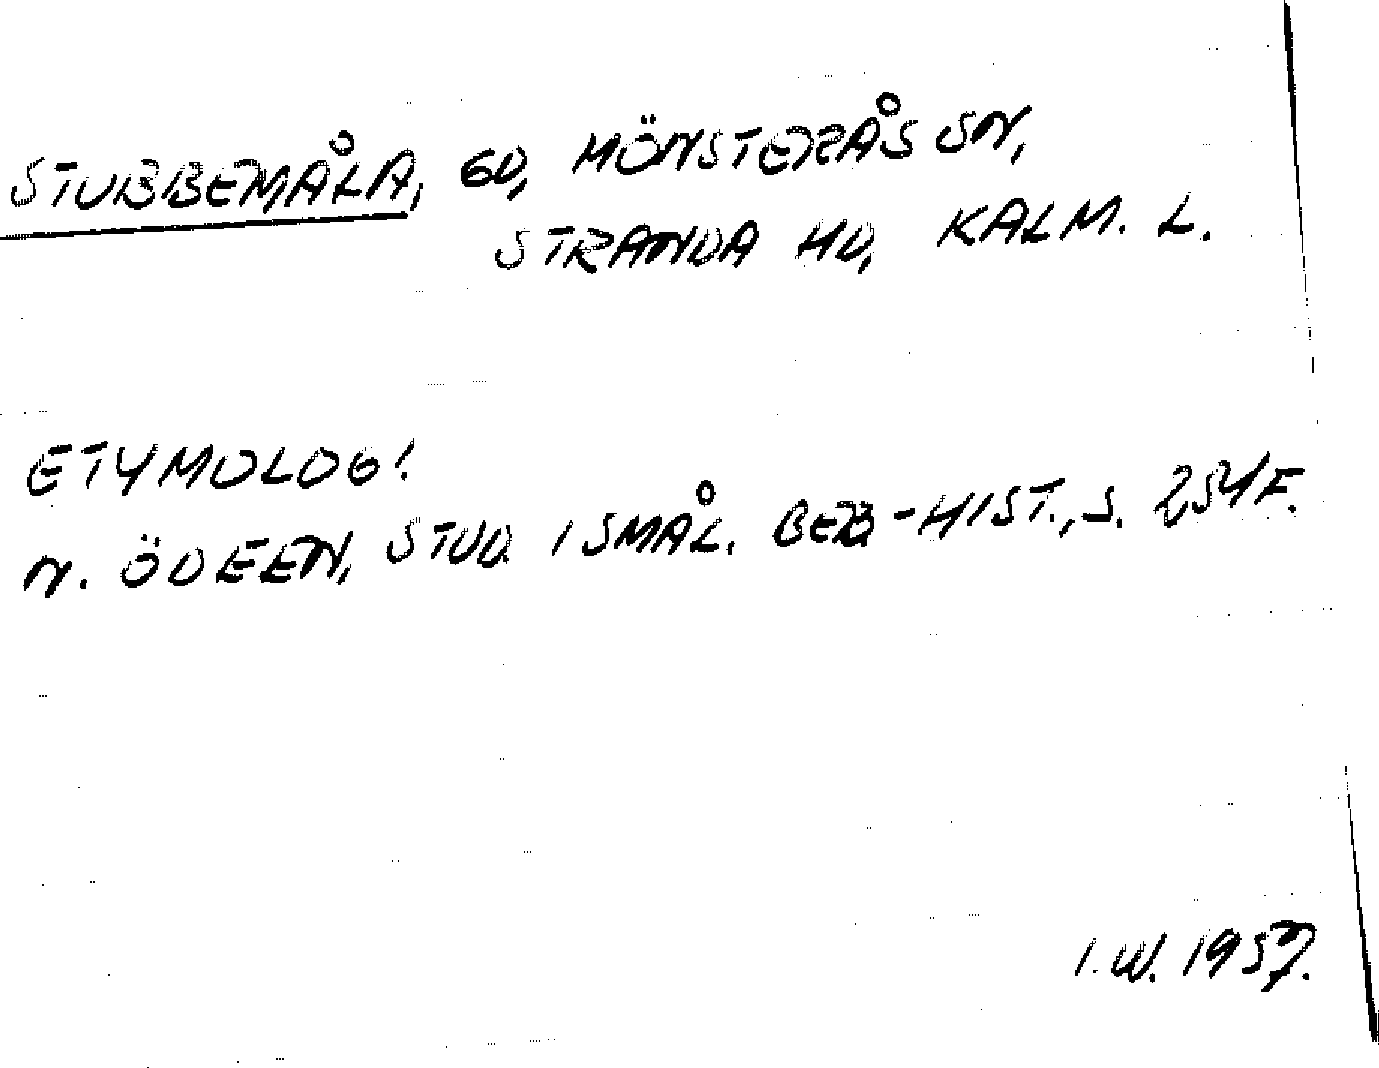 STUBBEMÅLA, GD, MÖNSTERÅS SN,
STRANDA HD, KALM. L.
ETYMOLOGI:
N. ÖDEEN, STUD. I SMÅL. BEB-HIST., S. 254F.
I.W. 1957.